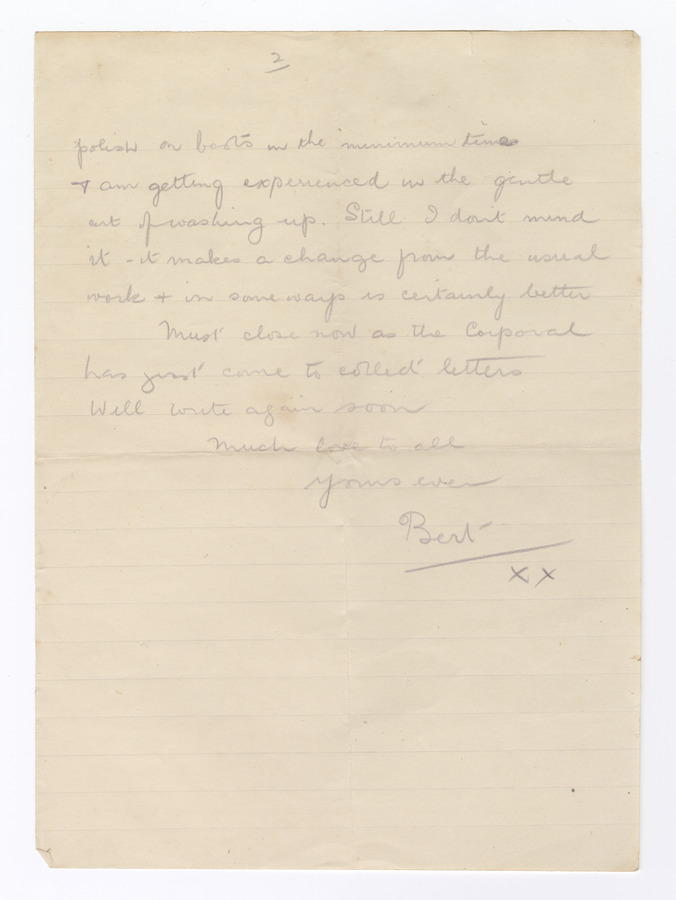 2
polish on boots in the minimum time
& am getting experienced in the gentle
art of washing up. Still I don't mind
it - it makes a change from the usual
work + in some ways is certainly better
Must close now as the Corporal
has just come to collect letters
Will write again soon
Much love to all
Yours ever
Bert
x x